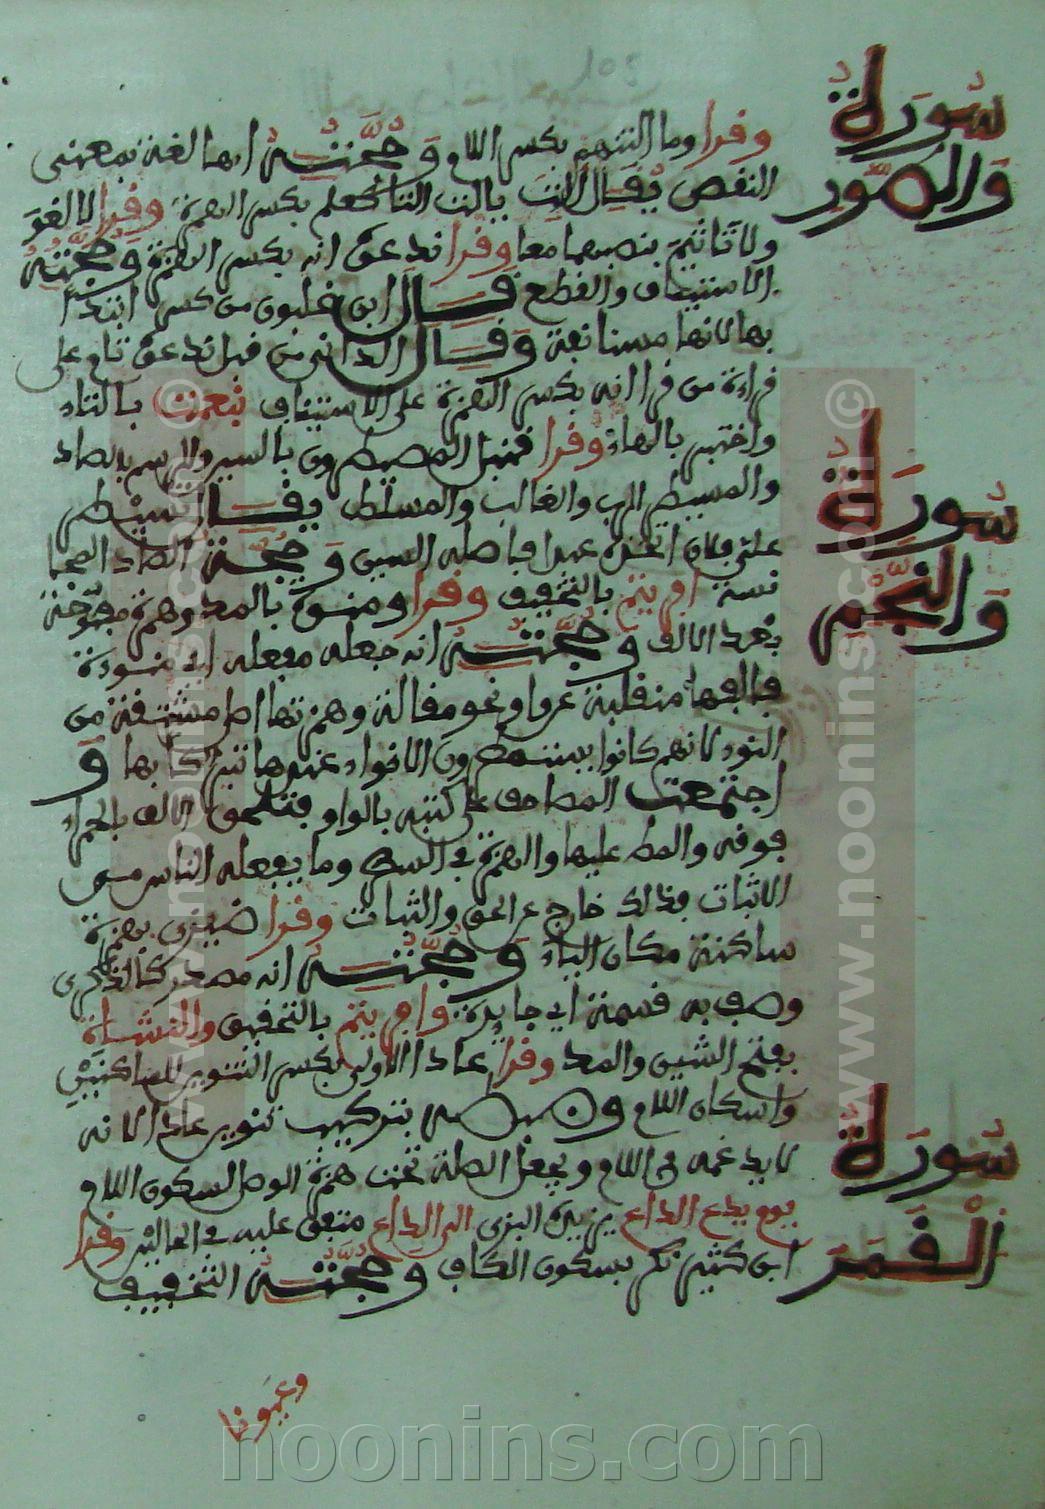 سُورَة
وَالطُّور
وقرا وما التنهم بكسر اللام وَحُجَّتُهُ انها لغة بمعنى
النقص يُقال الت يالت التا كعلم بكسر الهمزة وقرا لا لغو
ولا تاثيم بنصبهما معا وقرا ندعوه انه بكسر الهمزة وحجته
الاستيناف والقطع قال ابن غلبون من كسر ابتدا
بها لانها مستانفة وقال الداني من قبل ندعوه تام على
قراءة من قرا انه بكسر الهمزة على الاستيناف بنعمت بالتاء
بالهاء وقرا قنبل المصيطرون بالسين والرسم بالصاد
والمسيطر الرب والغالب والمسلط يقال تسيطر
على فلان اتخذه عبدا فاصله السين وحجة الصاد المجا
سُورَة
وَالنَّجْم
نسة افريتم بالتخفيف وقرا ومنوة بالمد وهمزة مفتوحة
بعد الالف وحجته انه جعله مفعلة اي منوءة
فالفها منقلبة عن واو نحو مقالة وهمزتها اصل مشتقة من
النوء لانهم كانوا يستمطرون الانواء عندها تبركا بها و
اجتمعت المصاحف على كتبه بالواو فتلحق الالف بالحمراء
فوقه والمط عليها والهمزة في السطر وما يفعله الناس من
الاثبات فذلك خارج عن الحق والثبات وقرا ضيزى بهمزة
ساكنة مكان الياء وحجته انه مصدر كالذكرى
وصف به قسمة اي جايرة وافريتم بالتخفيف والنشاة
بفتح الشين والمد وقرا عادا الاولى بكسر التنوين للساكنين
واسكان اللام بتركيب تنوين عادا لانه
لا يدغمه في اللام ويجعل الصلة تحت همزة الوصل لسكون اللام
سُورَة
القَمَر
يوم يدع الداع يزيده البزي الى الداع متفق عليه في الحالين وقرا
ابن كثير نكر بسكون الكاف وحجته التخفيف
وعيونا
noonins.com
www.noonins.com ©
www.noonins.com ©